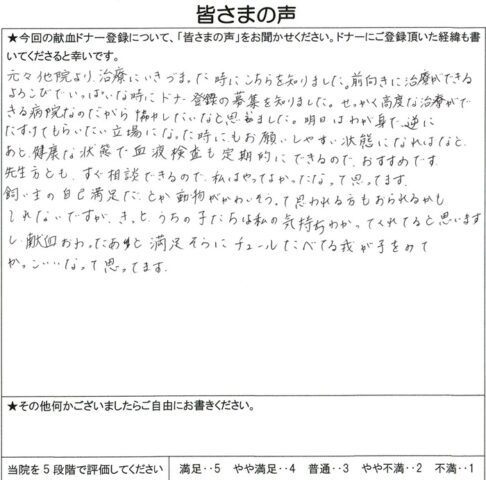 皆さまの声
★今回の献血ドナー登録について、「皆さまの声」をお聞かせください。ドナーにご登録頂いた経緯も書
いてくださると幸いです。
元々他院より、治療にいきづまった時にこちらを知りました。前向きに治療ができる
よろこびでいっぱいな時にドナー登録の募集を知りました。せっかく高度な治療がで
きる病院なのだから協力したいなと思いました。明日はわが身で、逆に
たすけてもらいたい立場になった時にもお願いしやすい状態になればなと。
あと、健康な状態で血液検査も定期的にできるので、おすすめです。
先生方とも、すぐ相談できるので、私はやってよかったなって思ってます。
飼い主の自己満足だとか動物がかわいそうって思われる方もおられるかも
しれないですが、きっと、うちの子たちは私の気持ちわかってくれてると思います
し、献血おわったあと満足そうにチュールたべてる我が子をみて
かっこいいなって思ってます。
★その他何かございましたらご自由にお書きください。
当院を5段階で評価してください 満足‥5 やや満足‥4 普通‥3 やや不満‥2 不満‥1